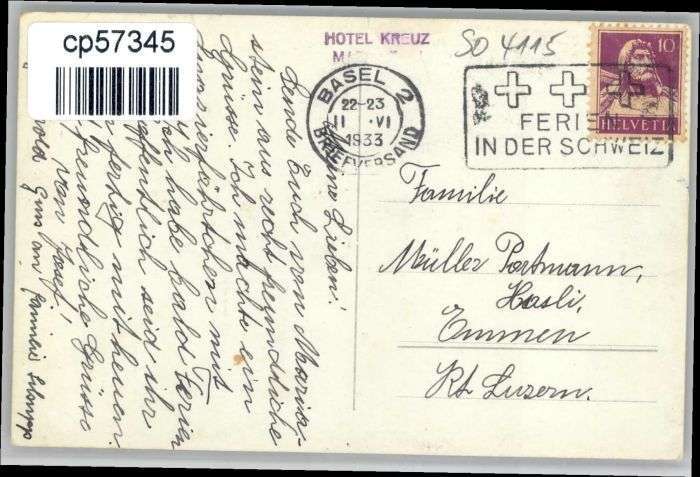 cp57345
HOTEL KREUZ
SO 4115
BASEL 2
22-23
11 VI
1933
BRIEFVERSAND
FERIEN
IN DER SCHWEIZ
10
HELVETIA
Meine Lieben!
Sende Euch von Maria-
stein aus recht freundliche
Grüsse. Ich machte ein
mit
ich habe bald Ferien
hoffentlich seid ihr
fertig mit heuen.
freundliche Grüsse
von Josef!
Familie
Müller Portmann,
Hasli,
Emmen
Kt. Luzern.